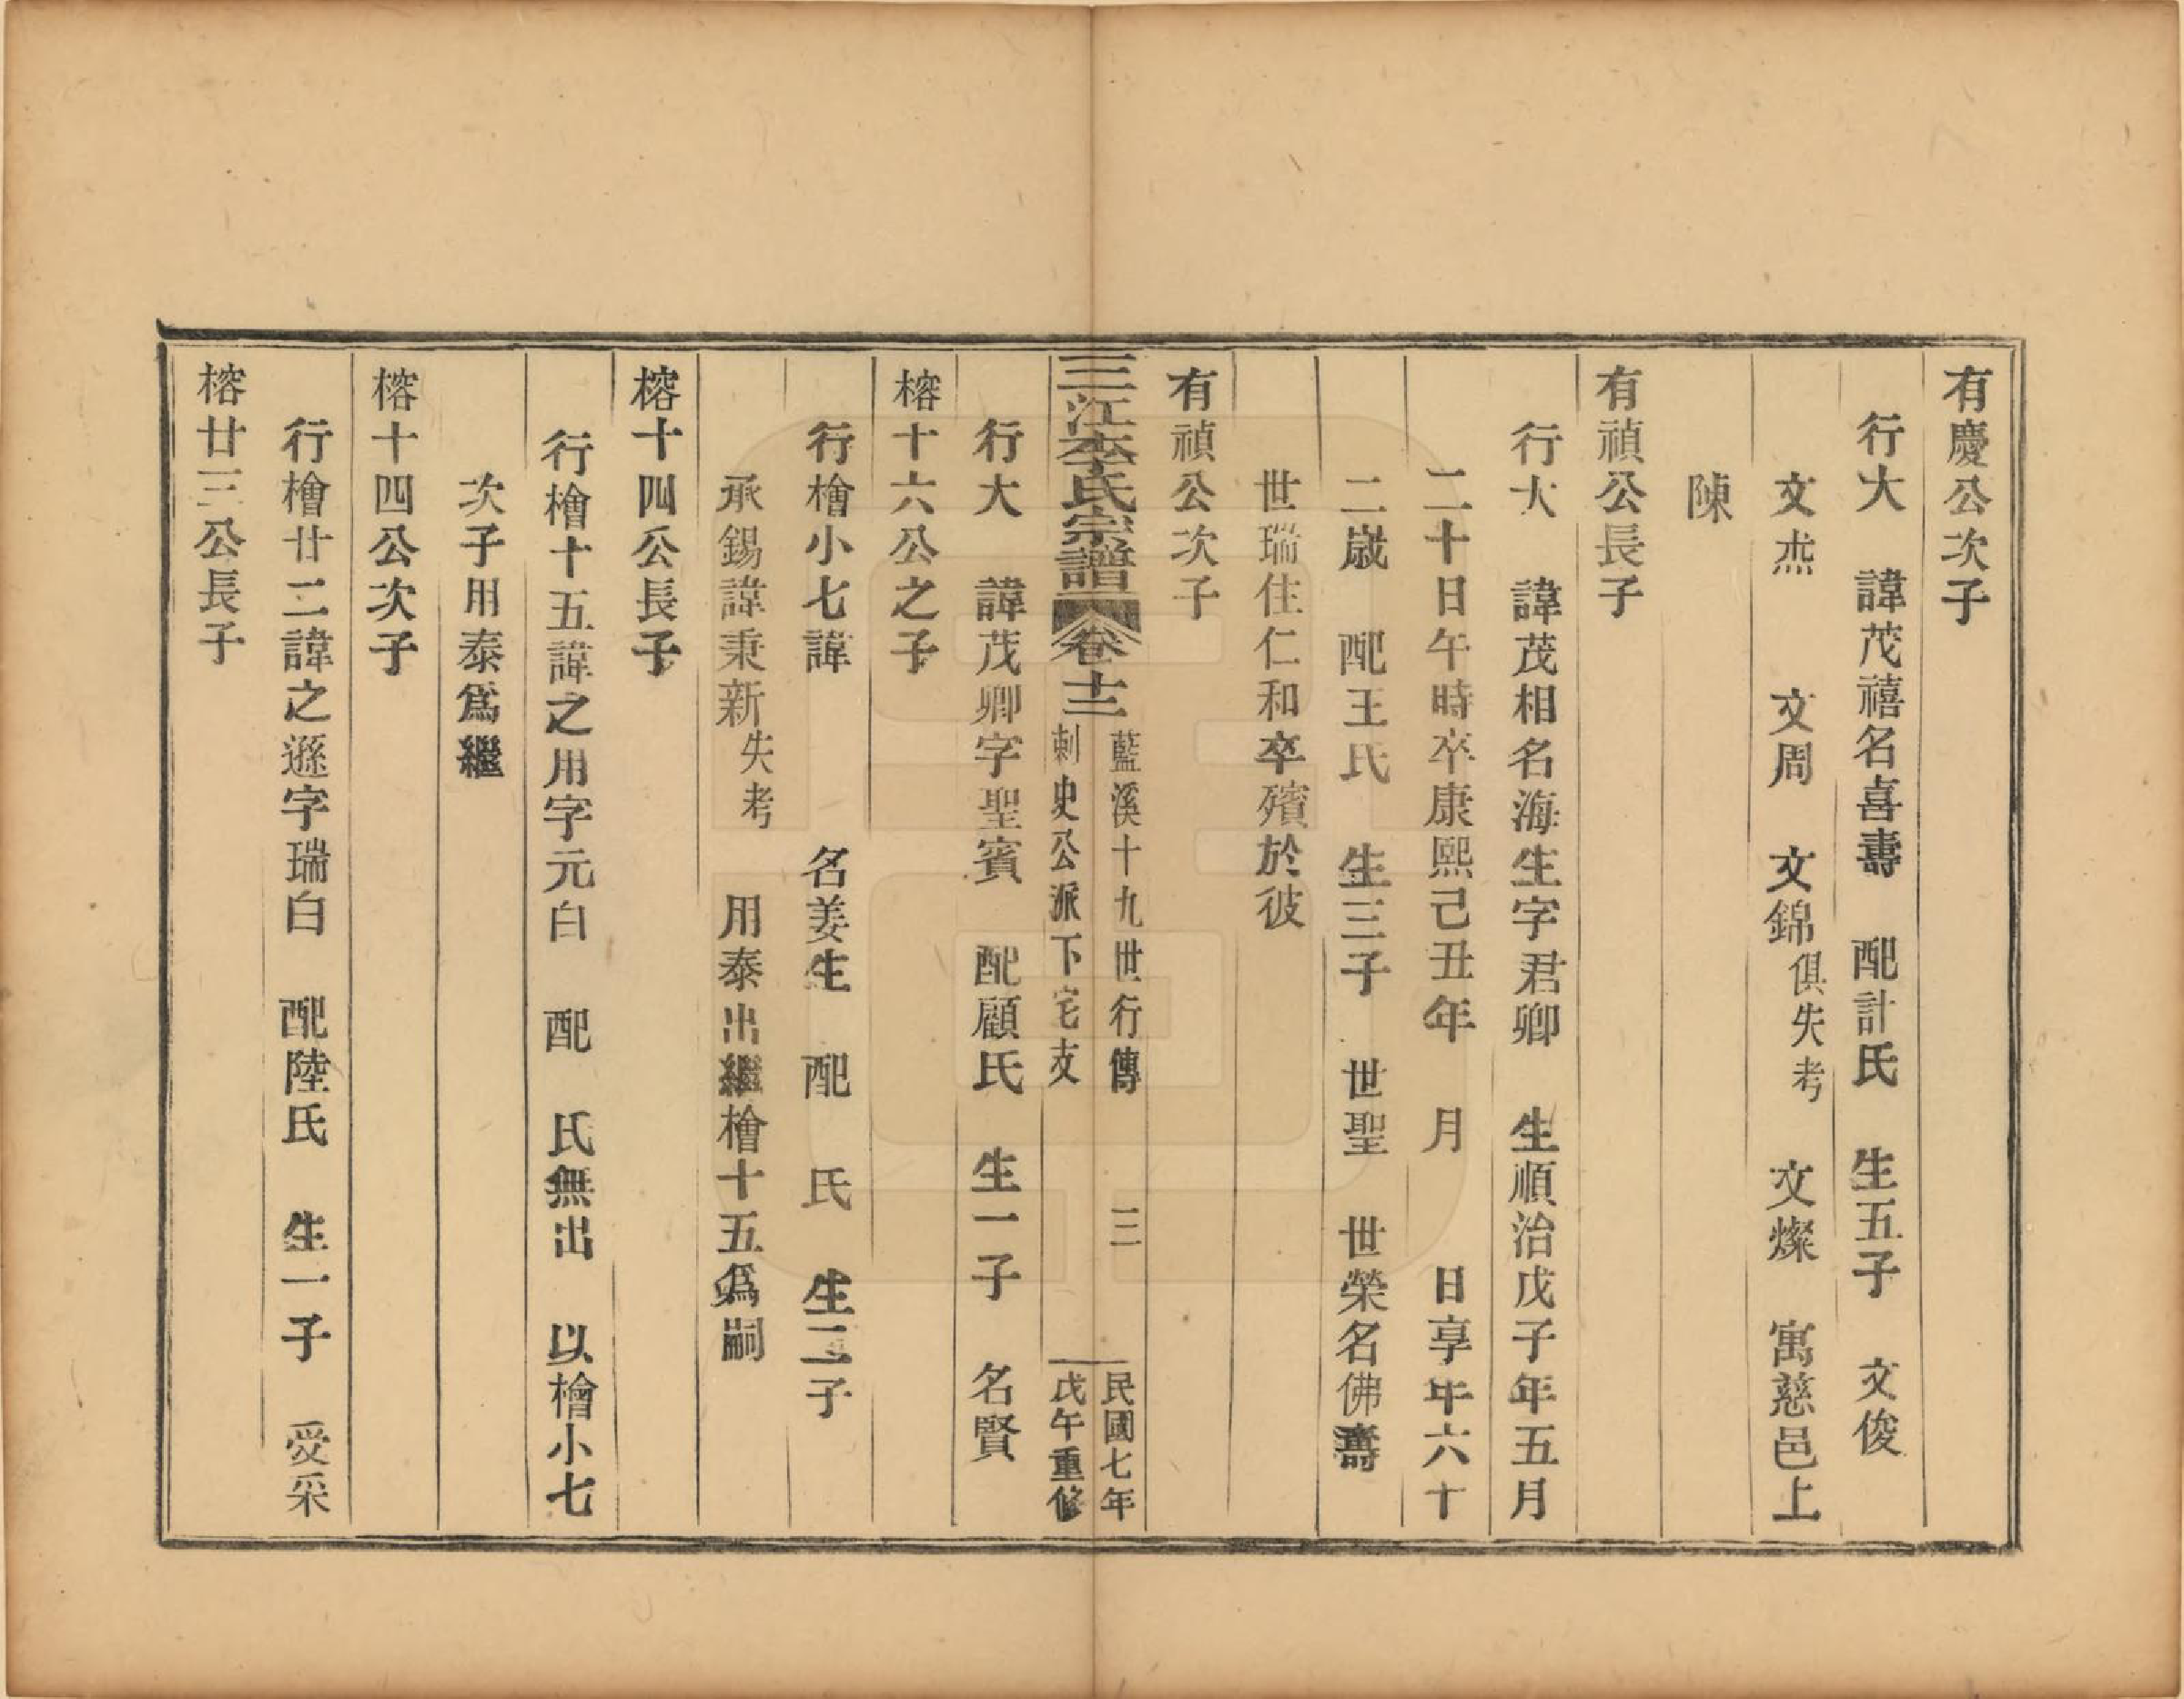 有慶公次子
行大　諱茂禧名喜壽　配計氏　生五子　文俊
文𤇍　文周　文錦俱失考　文燦　寓慈邑上
陳
有禎公長子
行大　諱茂相名海生字君卿　生順治戊子年五月
二十日午時卒康熙己丑年　月　日享年六十
二歲　配王氏　生三子　世聖　世榮名佛壽
世瑞住仁和卒殯於彼
有禎公次子
三江李氏宗譜　卷十二　藍溪十九世行傳　三　民國七年
刺史公派下宅支　戊午重修
行大　諱茂卿字聖賓　配顧氏　生一子　名賢
榕十六公之子
行檜小七諱　名姜生　配　氏　生二子
承錫諱秉新失考　用泰出繼檜十五爲嗣
榕十四公長子
行檜十五諱之用字元白　配　氏無出　以檜小七
次子用泰爲繼
榕十四公次子
行檜廿二諱之遜字瑞白　配陸氏　生一子　受采
榕廿三公長子